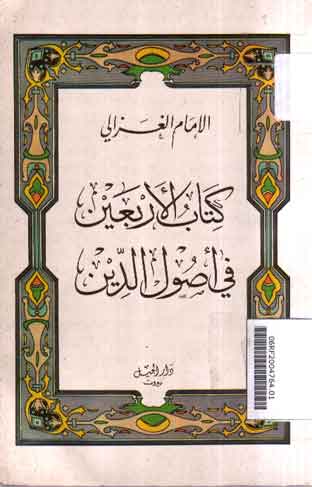 الإمام الغزالي
كتاب الأربعين
في أصول الدين
دار الجيل
بيروت
06RF2004764.01